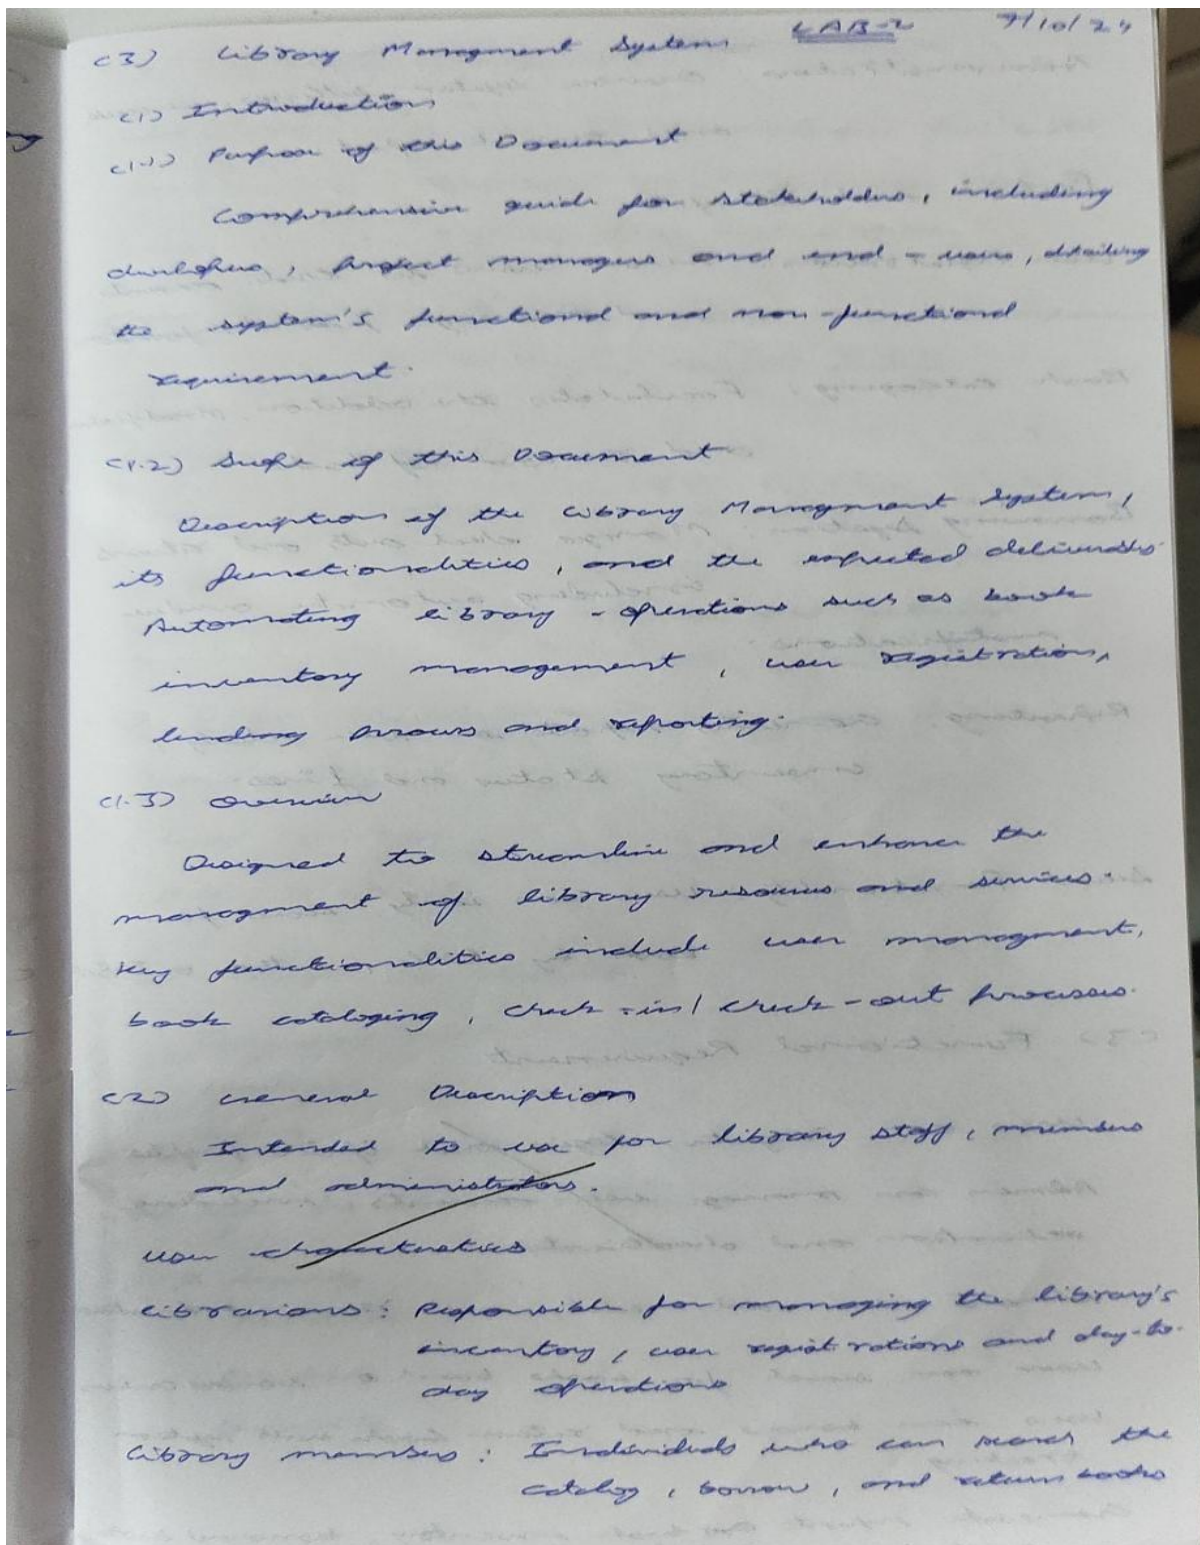 LAB-2 7/10/24
(3) Library Managment System
(1) Introduction
(1.1) Purpose of this Document
Comprehensive guide for stakeholders, including
developers, project managers and end - users, detailing
the system's functional and non-functional
requirement.
(1.2) Scope of this Document
Description of the Library Managment System,
its functionalities, and the expected deliverables
Automating library - operations such as book
inventory management, user registration,
lending process and reporting.
(1.3) Overview
Designed to streamline and enhance the
managment of library resources and services.
Key functionalities include user managment,
book cataloging, check-in/check-out processes.
(2) General Description
Intended to use for library staff, members
and administrators.
User characteristics
Librarians: Responsible for managing the library's
inventory, user registrations and day-to-
day operations
Library members: Individuals who can search the
catalog, borrow, and return books